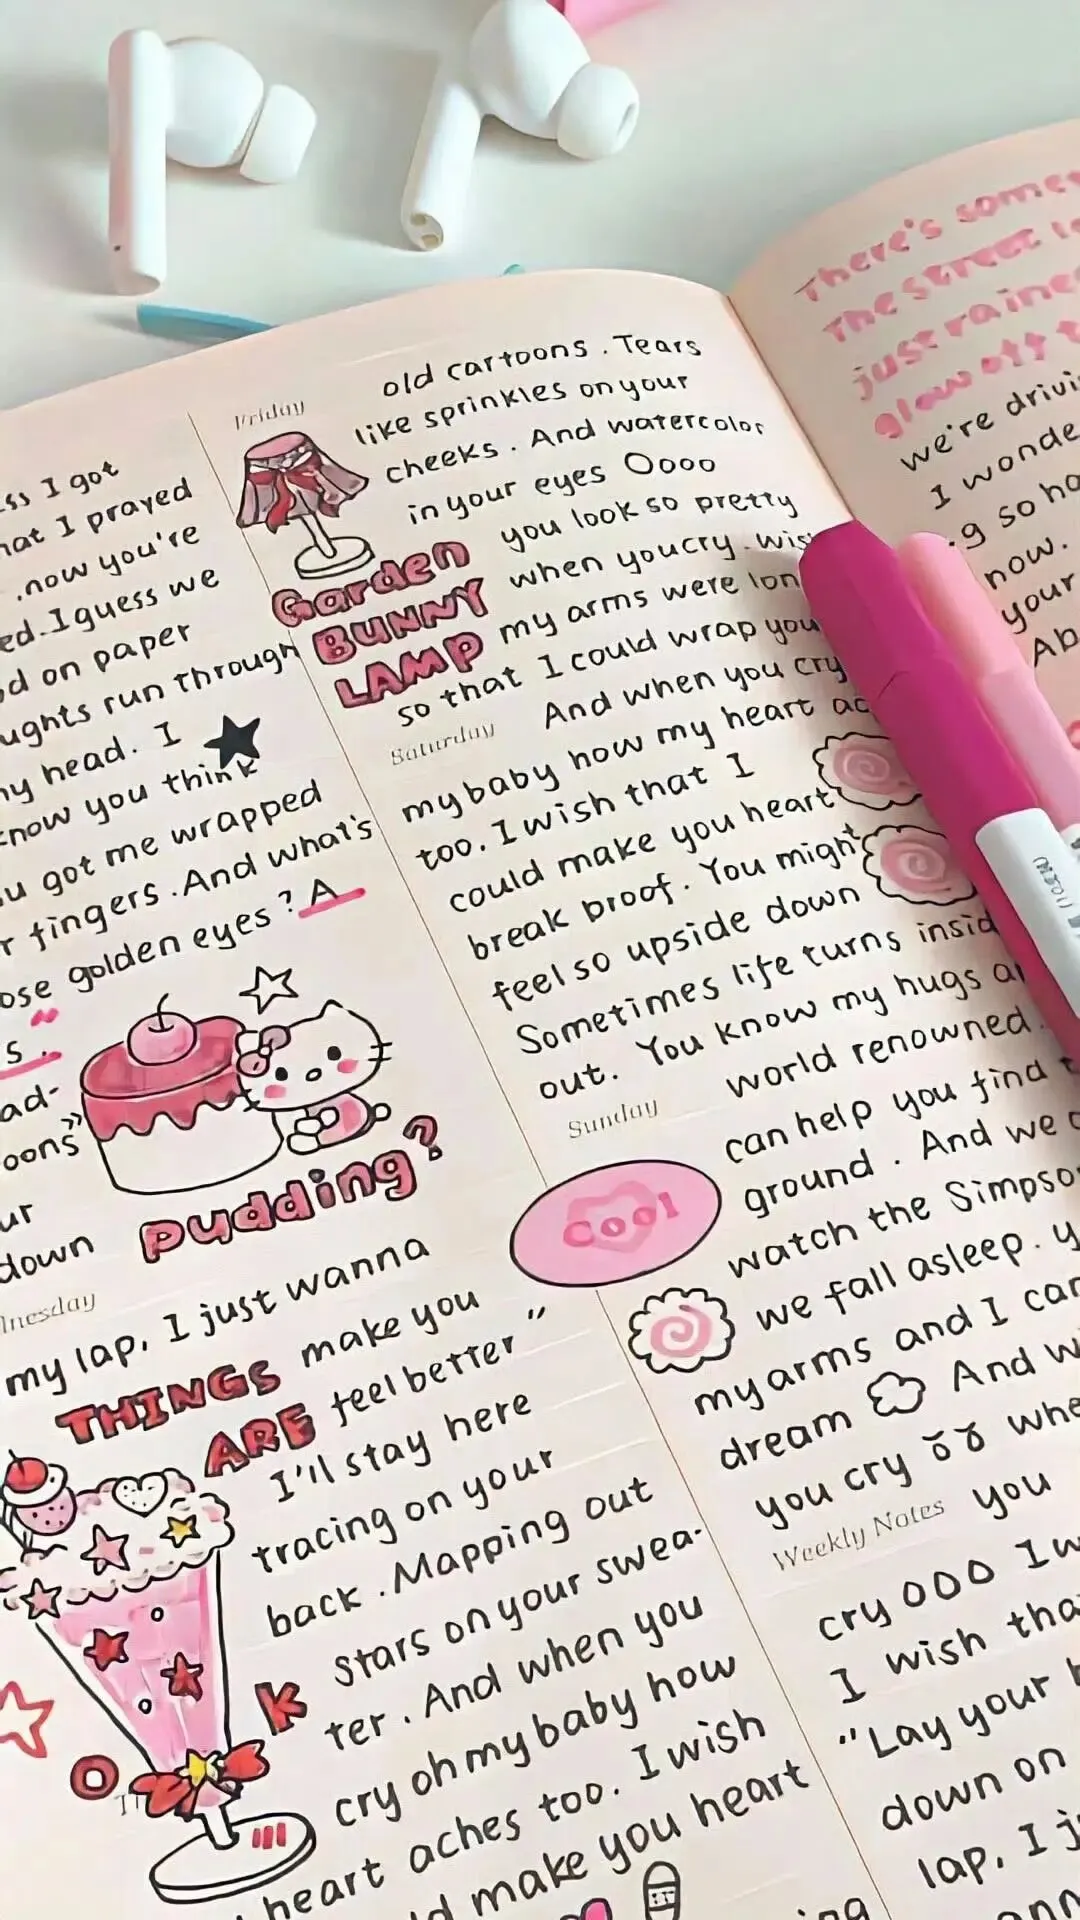 I got
that I prayed
now you're
I guess we
on paper
run through
head. I
know you think
got me wrapped
fingers. And what's
golden eyes? A
s.
ad-
oons"
down
pudding?
my lap, I just wanna
THINGS make you
ARE feel better"
I'll stay here
tracing on your
back. Mapping out
stars on your swea-
OK
ter. And when you
cry oh my baby how
heart aches too. I wish
make you heart
Friday
old cartoons. Tears
like sprinkles on your
cheeks. And watercolor
in your eyes Oooo
you look so pretty
Garden
BUNNY
LAMP
when you cry.
my arms were
so that I could wrap
Saturday
And when you cry
my baby how my heart
too. I wish that I
could make you heart
break proof. You might
feel so upside down
Sometimes life turns
out. You know my hugs
world renowned.
Sunday
can help you find
ground. And we
cool
watch the
we fall asleep.
my arms and I
dream And
you cry
Weekly Notes
you
cry ooo I
I wish
"Lay your
down on
lap, I
There's
The street
just
glow off
we're
I
so
now.
your